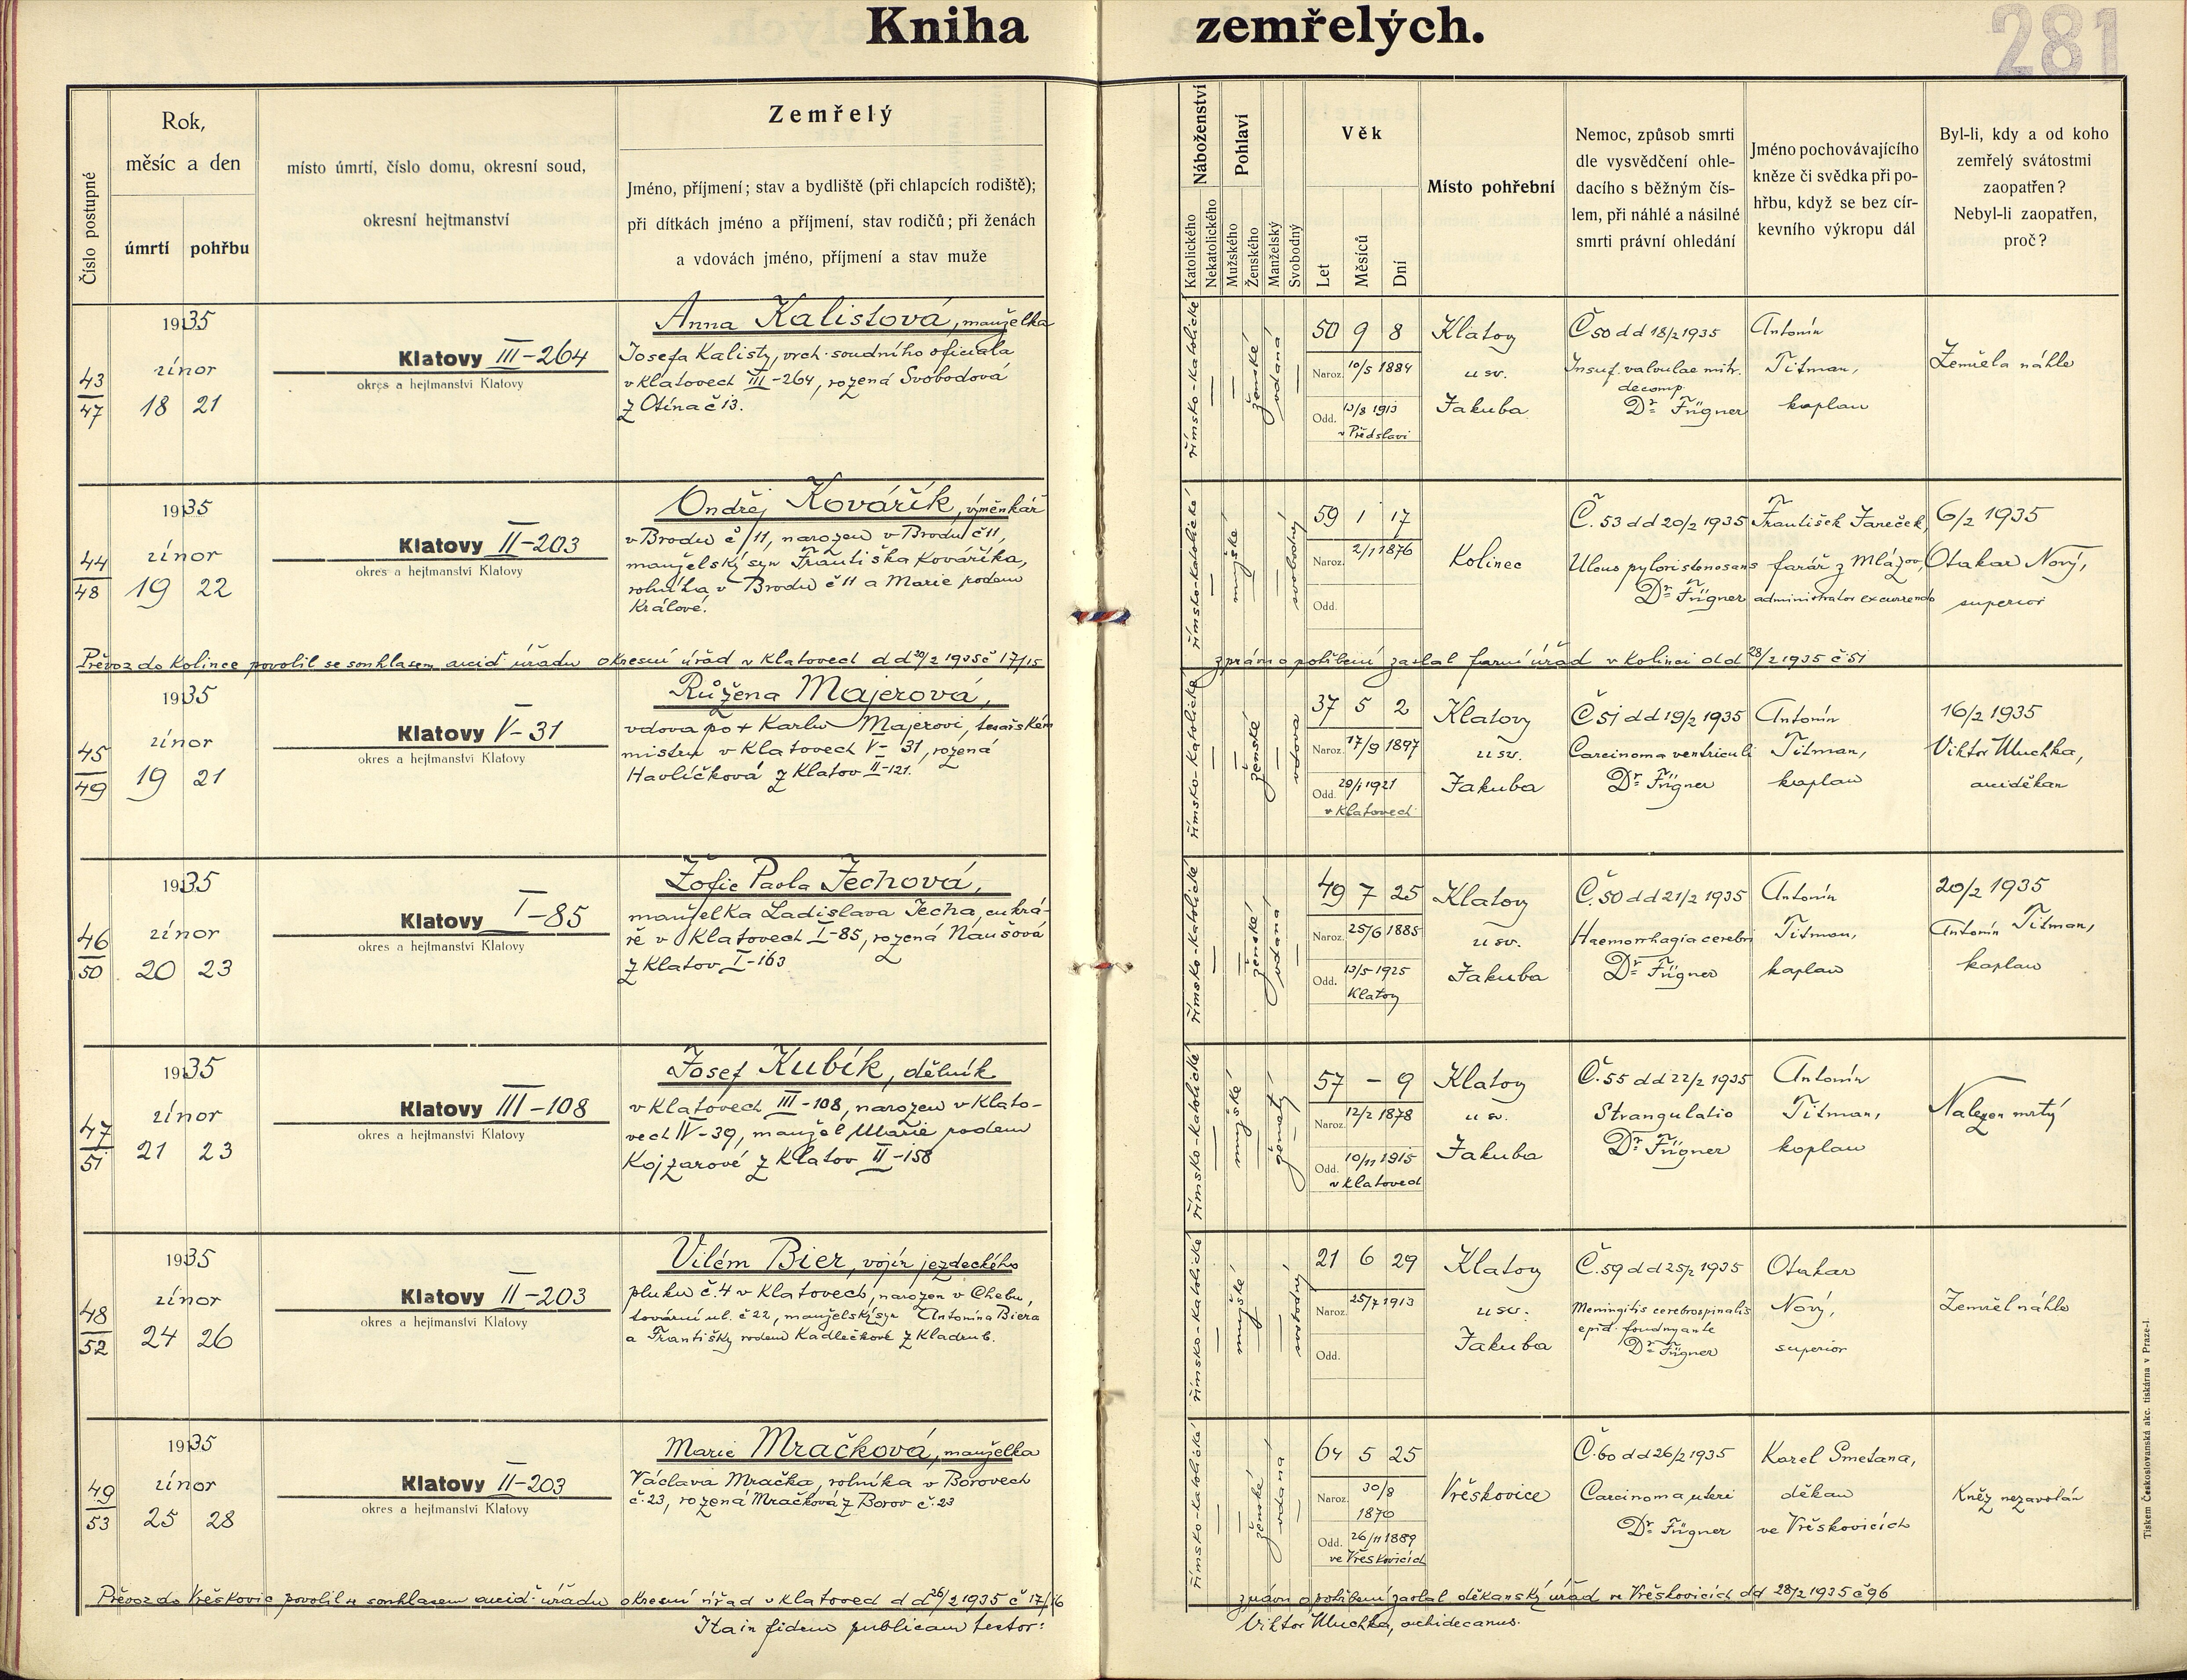 Kniha zemřelých.
281
Číslo postupné
Rok,
měsíc a den
úmrtí
pohřbu
místo úmrtí, číslo domu, okresní soud,
okresní hejtmanství
Zemřelý
Jméno, příjmení; stav a bydliště (při chlapcích rodiště);
při dítkách jméno a příjmení, stav rodičů; při ženách
a vdovách jméno, příjmení a stav muže
Náboženství
Katolického
Nekatolického
Pohlaví
Mužského
Ženského
Manželský
Svobodný
Věk
Let
Měsíců
Dní
Místo pohřební
Nemoc, způsob smrti
dle vysvědčení ohle-
dacího s běžným čís-
lem, při náhlé a násilné
smrti právní ohledání
Jméno pochovávajícího
kněze či svědka při po-
hřbu, když se bez cír-
kevního výkropu dál
Byl-li, kdy a od koho
zemřelý svátostmi
zaopatřen?
Nebyl-li zaopatřen,
proč?
43
47
1935
únor
18 21
Klatovy III-264
okres a hejtmanství Klatovy
Anna Kalistová, manželka
Josefa Kalisty, vrch. soudního oficiala
v Klatovech III-264, rozená Svobodová
z Otína č 13.
římsko-katolické
ženské
vdaná
50 9 8
Naroz. 10/5 1884
Odd. 13/8 1913
v Předslavi
Klatovy
u sv.
Jakuba
Č 50 dd 18/2 1935
Insuf. valvulae mitr.
decomp.
Dr Fügner
Antonín
Titman,
kaplan
Zemřela náhle
44
48
1935
únor
19 22
Klatovy II-203
okres a hejtmanství Klatovy
Ondřej Kovářík, výměnkář
v Brodu č 11, narozen v Brodu č 11,
manželský syn Františka Kováříka,
rolníka v Brodu č 11 a Marie rodem
Králové.
římsko-katolické
mužské
svobodný
59 1 17
Naroz. 2/1 1876
Odd.
Kolinec
Č. 53 dd 20/2 1935
Ulcus pylori stenosans
Dr Fügner
František Janeček,
farář z Mlázov,
administrator excurrendo
6/2 1935
Otakar Nový,
superior
Převoz do Kolince povolil se souhlasem arcid. úřadu okresní úřad v Klatovech dd 20/2 1935 č 17/15
zprávu o pohřbení zaslal farní úřad v Kolinci dd 28/2 1935 č 51
45
49
1935
únor
19 21
Klatovy V-31
okres a hejtmanství Klatovy
Růžena Majerová,
vdova po + Karlu Majerovi, tesařském
mistru v Klatovech V-31, rozená
Havlíčková z Klatov II-121.
římsko-katolické
ženské
vdova
37 5 2
Naroz. 17/9 1897
Odd. 29/1 1921
v Klatovech
Klatovy
u sv.
Jakuba
Č 51 dd 19/2 1935
Carcinoma ventriculi
Dr Fügner
Antonín
Titman,
kaplan
16/2 1935
Viktor Muchka,
arciděkan
46
50
1935
únor
20 23
Klatovy I-85
okres a hejtmanství Klatovy
Žofie Paola Jechová,
manželka Ladislava Jecha, cukrá-
ře v Klatovech I-85, rozená Naušová
z Klatov I-163
římsko-katolické
ženské
vdaná
49 7 25
Naroz. 25/6 1885
Odd. 13/5 1925
Klatovy
Klatovy
u sv.
Jakuba
Č. 50 dd 21/2 1935
Haemorrhagia cerebri
Dr Fügner
Antonín
Titman,
kaplan
20/2 1935
Antonín Titman,
kaplan
47
51
1935
únor
21 23
Klatovy III-108
okres a hejtmanství Klatovy
Josef Kubík, dělník
v Klatovech III-108, narozen v Klato-
vech IV-39, manžel Marie rodem
Kojzarové z Klatov II-158
římsko-katolické
mužské
ženatý
57 - 9
Naroz. 12/2 1878
Odd. 10/11 1915
v Klatovech
Klatovy
u sv.
Jakuba
Č. 55 dd 22/2 1935
Strangulatio
Dr Fügner
Antonín
Titman,
kaplan
Nalezen mrtvý
48
52
1935
únor
24 26
Klatovy II-203
okres a hejtmanství Klatovy
Vilém Bier, vojín jezdeckého
pluku č. 4 v Klatovech, narozen v Chebu,
tovární ul. č 22, manželský syn Antonína Biera
a Františky rodem Kadlečkové z Kladrub.
římsko-katolické
mužské
svobodný
21 6 29
Naroz. 25/7 1913
Odd.
Klatovy
u sv.
Jakuba
Č. 59 dd 25/2 1935
Meningitis cerebrospinalis
epid. foudroyante
Dr Fügner
Otakar
Nový,
superior
Zemřel náhle
49
53
1935
únor
25 28
Klatovy II-203
okres a hejtmanství Klatovy
Marie Mračková, manželka
Václava Mračka, rolníka v Borovech
č. 23, rozená Mračková z Borov č. 23
římsko-katolické
ženské
vdaná
64 5 25
Naroz. 30/8
1870
Odd. 26/11 1889
ve Vřeskovicích
Vřeskovice
Č. 60 dd 26/2 1935
Carcinoma uteri
Dr Fügner
Karel Smetana,
děkan
ve Vřeskovicích
Kněz nezavolán
Převoz do Vřeskovic povolil s souhlasem arcid. úřadu okresní úřad v Klatovech dd 26/2 1935 č 17/16
zprávu o pohřbení zaslal děkanský úřad ve Vřeskovicích dd 28/2 1935 č 96
Ita in fidem publicam testor:
Viktor Muchka, archidecanus.
Tiskem Československá akc. tiskárna v Praze-I.